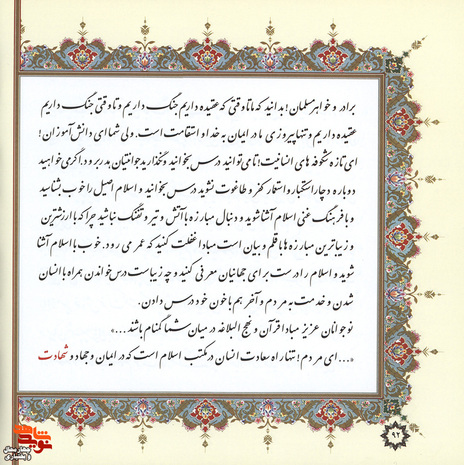 برادر و خواهر مسلمان! بدانید که ما تا وقتی که عقیده داریم جنگ داریم و تا وقتی جنگ داریم
عقیده داریم و تنها پیروزی ما در ایمان به خدا و استقامت است. ولی شما ای دانش آموزان!
ای تازه شکوفه های انسانیت! تا می توانید درس بخوانید و نگذارید جوانیتان به در برود. اگر می خواهید
دوباره دچار استکبار و استعمار کفر و طاغوت نشوید درس بخوانید و اسلام اصیل را خوب بشناسید
و با فرهنگ غنی اسلام آشنا شوید و دنبال مبارزه با آتش و تیر و تفنگ نباشید چرا که با ارزشترین
و زیباترین مبارزه ها با قلم و بیان است مبادا غفلت کنید که عمر می رود. خوب با اسلام آشنا
شوید و اسلام را درست برای جهانیان معرفی کنید و چه زیباست درس خواندن همراه با انسان
شدن و خدمت به مردم و آخر هم با خون خود درس دادن.
نوجوانان عزیز مبادا قرآن و نهج البلاغه در میان شما گمنام باشند...»
«... ای مردم! تنها راه سعادت انسان در مکتب اسلام است که در ایمان و جهاد و شهادت
۹۲